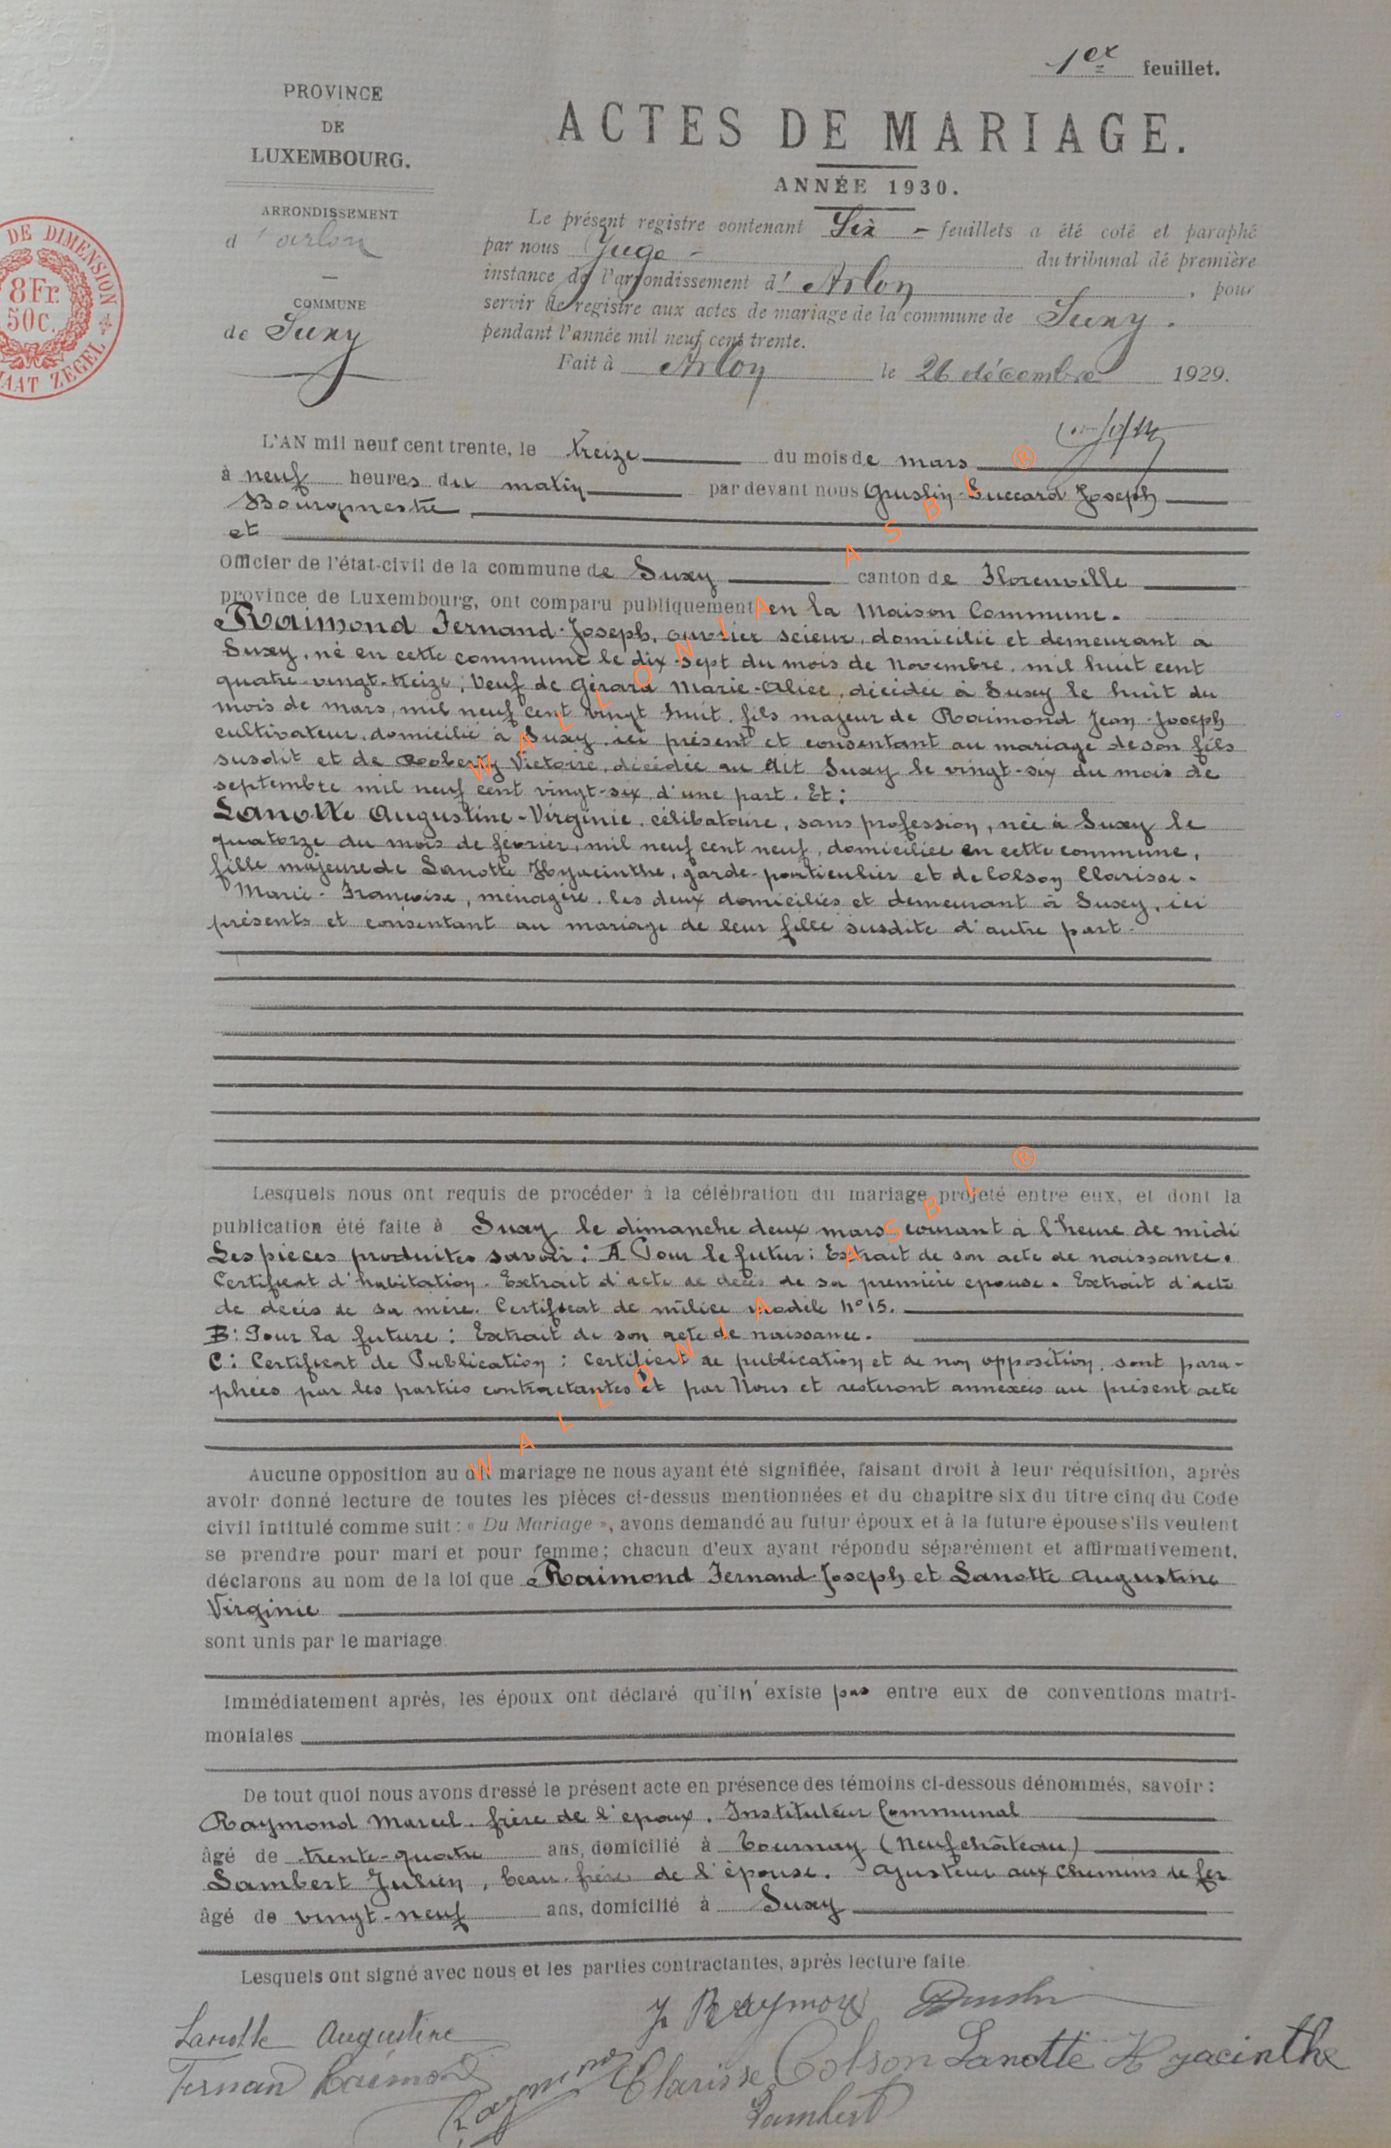 1er feuillet.
PROVINCE
DE
LUXEMBOURG.
ARRONDISSEMENT
d'arlon
COMMUNE
de Suxy
DE DIMENSION
8Fr.
50c.
ZEGEL
ACTES DE MARIAGE.
ANNÉE 1930.
Le présent registre contenant Six feuillets a été coté et paraphé
par nous Juge du tribunal de première
instance de l'arrondissement d' Arlon, pour
servir de registre aux actes de mariage de la commune de Suxy.
pendant l'année mil neuf cent trente.
Fait à Arlon le 26 décembre 1929.
L'AN mil neuf cent trente, le treize du mois de mars
à neuf heures du matin par devant nous Gruslin-Luccard Joseph
Bourgmestre
et
Officier de l'état-civil de la commune de Suxy canton de Florenville
province de Luxembourg, ont comparu publiquement en la Maison Commune.
Raimond Fernand-Joseph, ouvrier scieur, domicilié et demeurant a
Suxy, né en cette commune le dix-sept du mois de Novembre, mil huit cent
quatre-vingt-treize, Veuf de Gérard Marie-Alice, décédée à Suxy le huit du
mois de mars, mil neuf cent vingt huit, fils majeur de Raimond Jean-Joseph
cultivateur, domicilié à Suxy, ici présent et consentant au mariage de son fils
susdit et de Victoire, décédée au dit Suxy le vingt-six du mois de
septembre mil neuf cent vingt-six, d'une part. Et:
Lanotte Augustine-Virginie, célibataire, sans profession, née à Suxy le
quatorze du mois de février, mil neuf cent neuf, domiciliée en cette commune,
fille majeure de Lanotte Hyacinthe, garde-particulier et de Colson Clarisse-
Marie-Françoise, ménagère, les deux domiciliés et demeurant à Suxy, ici
présents et consentant au mariage de leur fille susdite d'autre part.
Lesquels nous ont requis de procéder à la célébration du mariage projeté entre eux, et dont la
publication été faite à Suxy le dimanche deux mars courant à l'heure de midi
Les pièces produites savoir: A Pour le futur: Extrait de son acte de naissance.
Certificat d'habitation. Extrait d'acte de décès de sa première epouse. Extrait d'acte
de décès de sa mère. Certificat de milice modèle N°15.
B: Pour la future: Extrait de son acte de naissance.
C: Certificat de Publication: Certificat de publication et de non opposition, sont para-
phées par les parties contractantes et par Nous et resteront annexées au présent acte
Aucune opposition au dit mariage ne nous ayant été signifiée, faisant droit à leur réquisition, après
avoir donné lecture de toutes les pièces ci-dessus mentionnées et du chapitre six du titre cinq du Code
civil intitulé comme suit: « Du Mariage », avons demandé au futur époux et à la future épouse s'ils veulent
se prendre pour mari et pour femme; chacun d'eux ayant répondu séparément et affirmativement,
déclarons au nom de la loi que Raimond Fernand-Joseph et Lanotte Augustine
Virginie
sont unis par le mariage
Immédiatement après, les époux ont déclaré qu'il n'existe pas entre eux de conventions matri-
moniales
De tout quoi nous avons dressé le présent acte en présence des témoins ci-dessous dénommés, savoir:
Raymond Marcel, frère de l'epoux, Instituteur Communal
âgé de trente-quatre ans, domicilié à Tournay (Neufchâteau)
Lambert Julien, beau-frère de l'épouse. Ajusteur aux chemins de fer
âgé de vingt-neuf ans, domicilié à Suxy
Lesquels ont signé avec nous et les parties contractantes, après lecture faite
J Raymond Gruslin
Lanotte Augustine
Fernand Raimond Clarisse Colson Lanotte Hyacinthe
Raymond Lambert
WALLONIA ASBL ®
WALLONIA ASBL ®